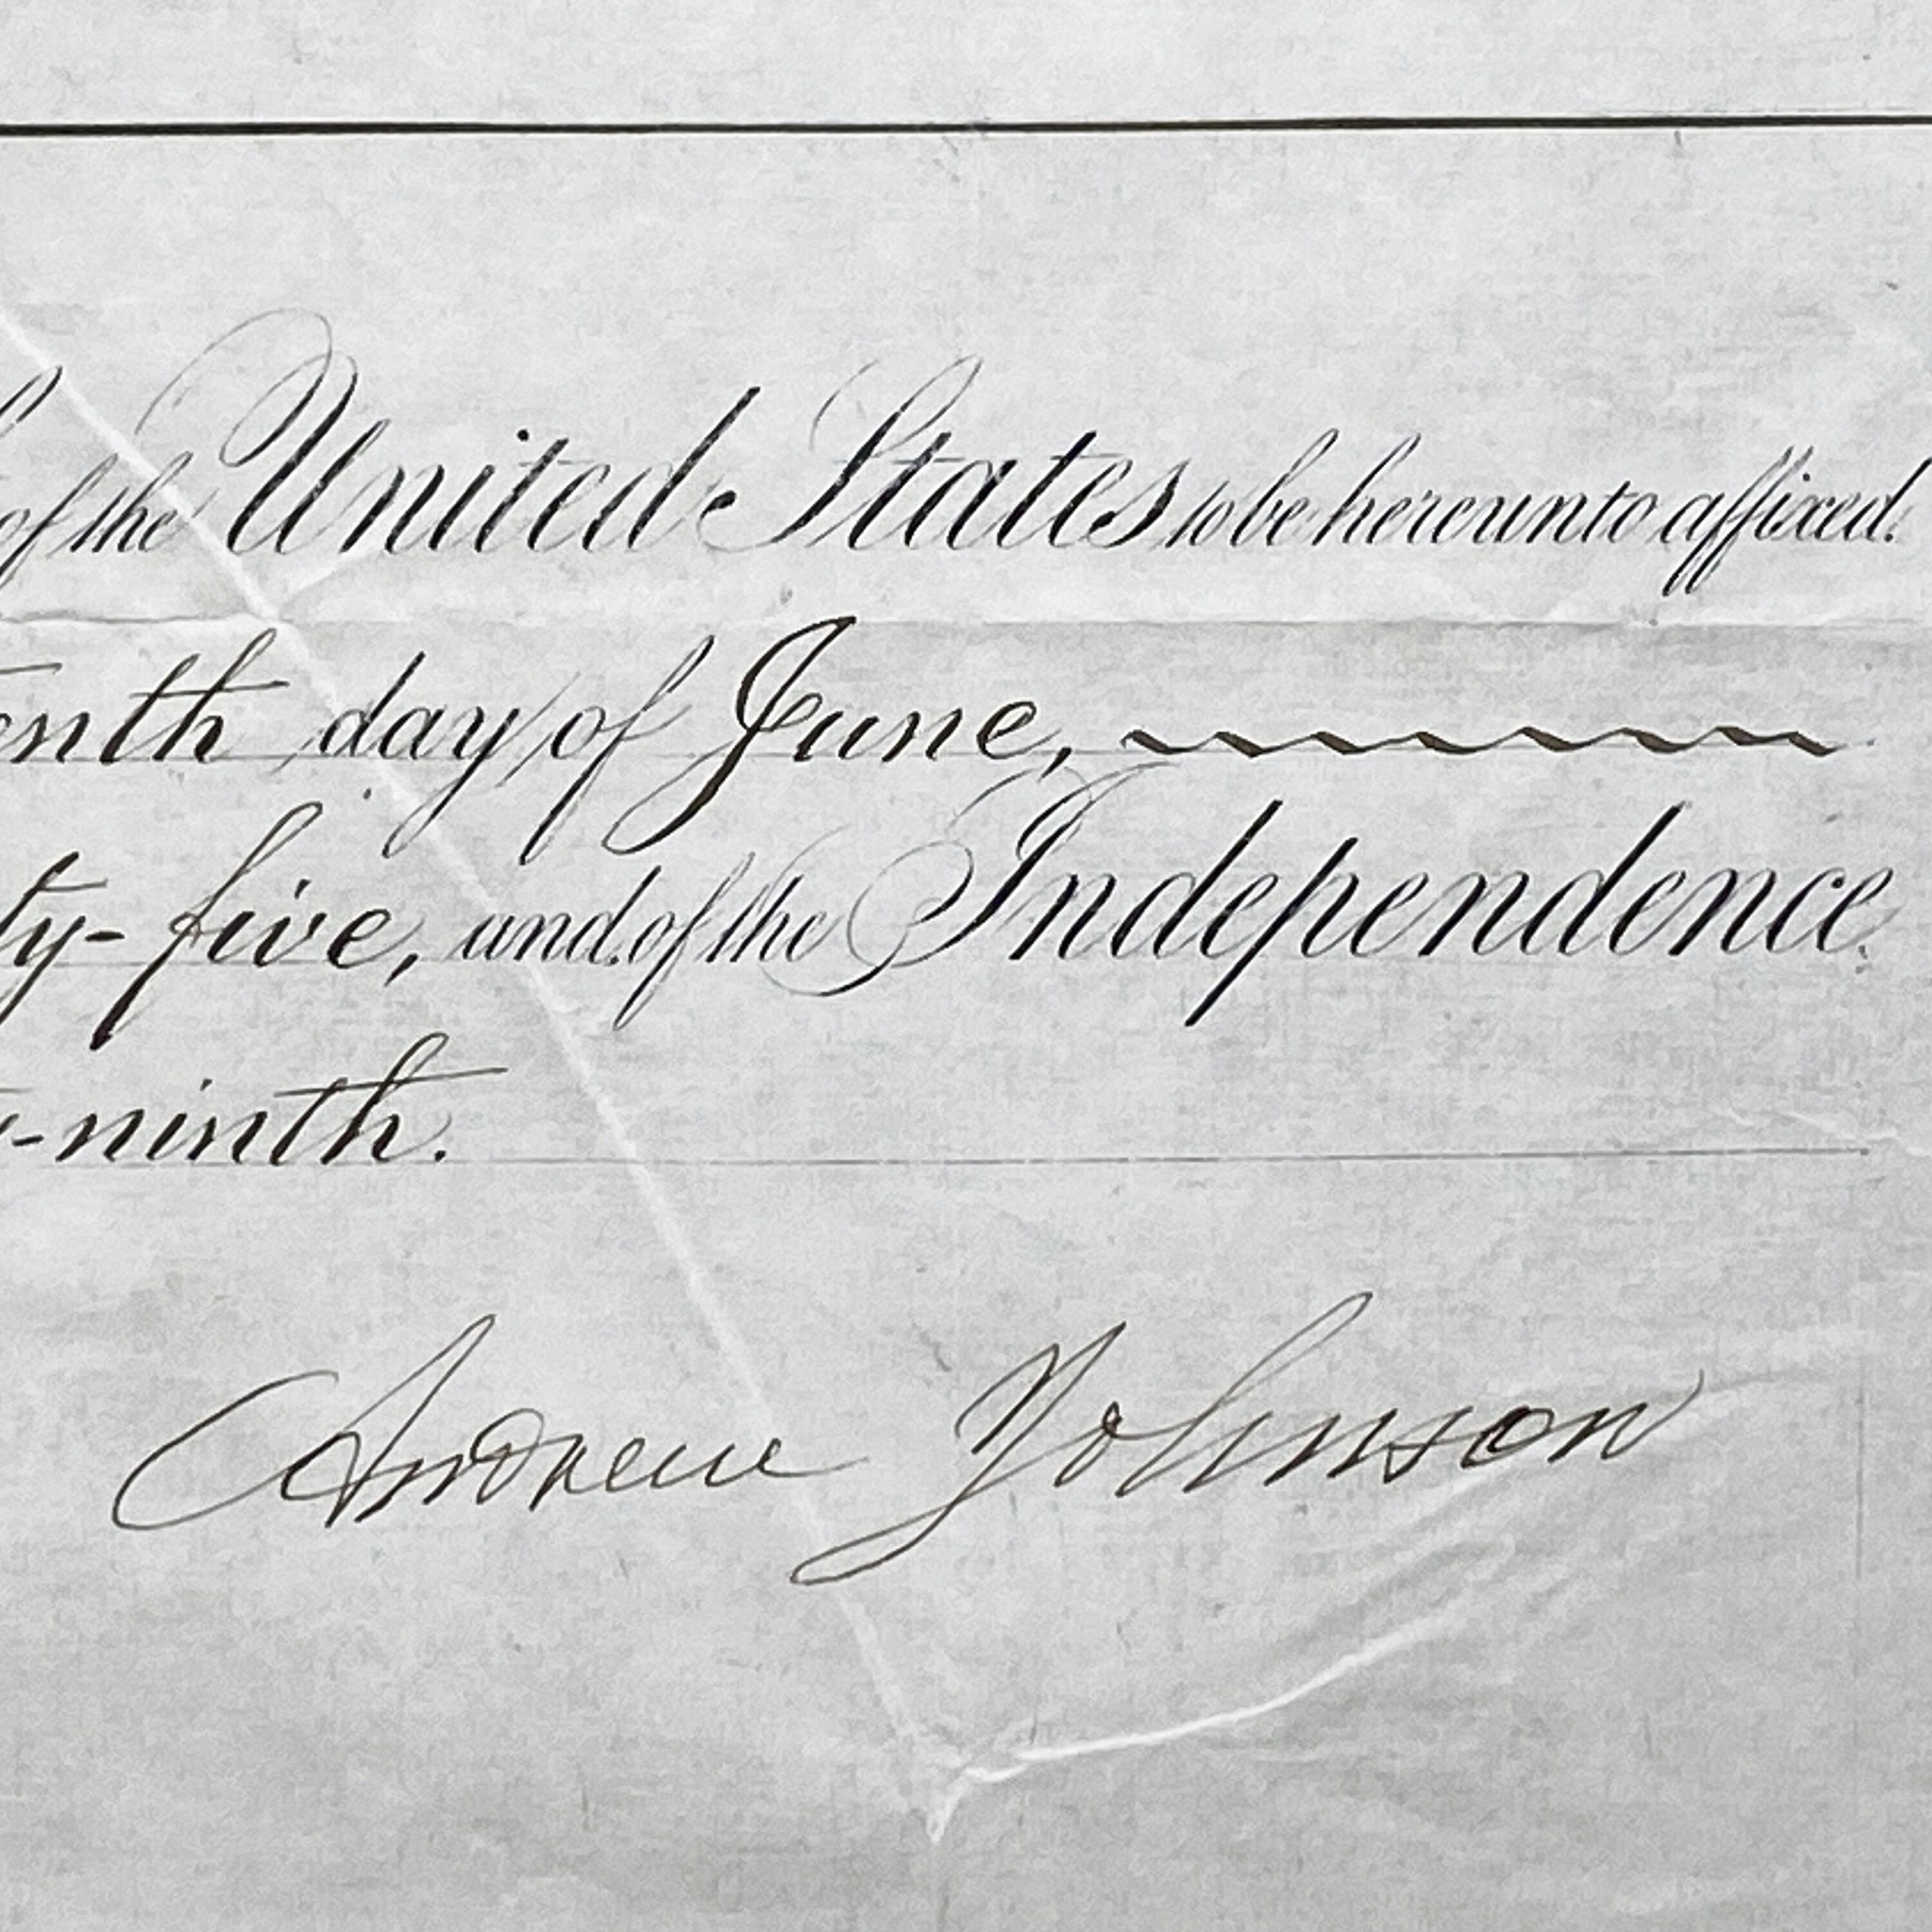 of the United States to be hereunto affixed.
enth day of June,
ty-five, and of the Independence
-ninth.
Andrew Johnson